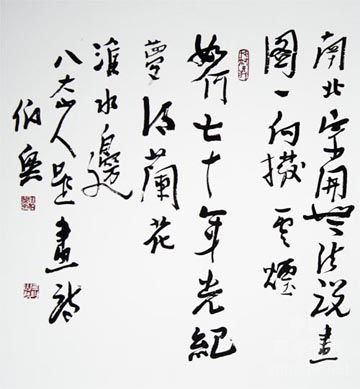 南北宗開無法說畫
圖一向撥雲煙
如何七十年光紀
夢得蘭花
淮水邊
八大山人題畫詩
伯